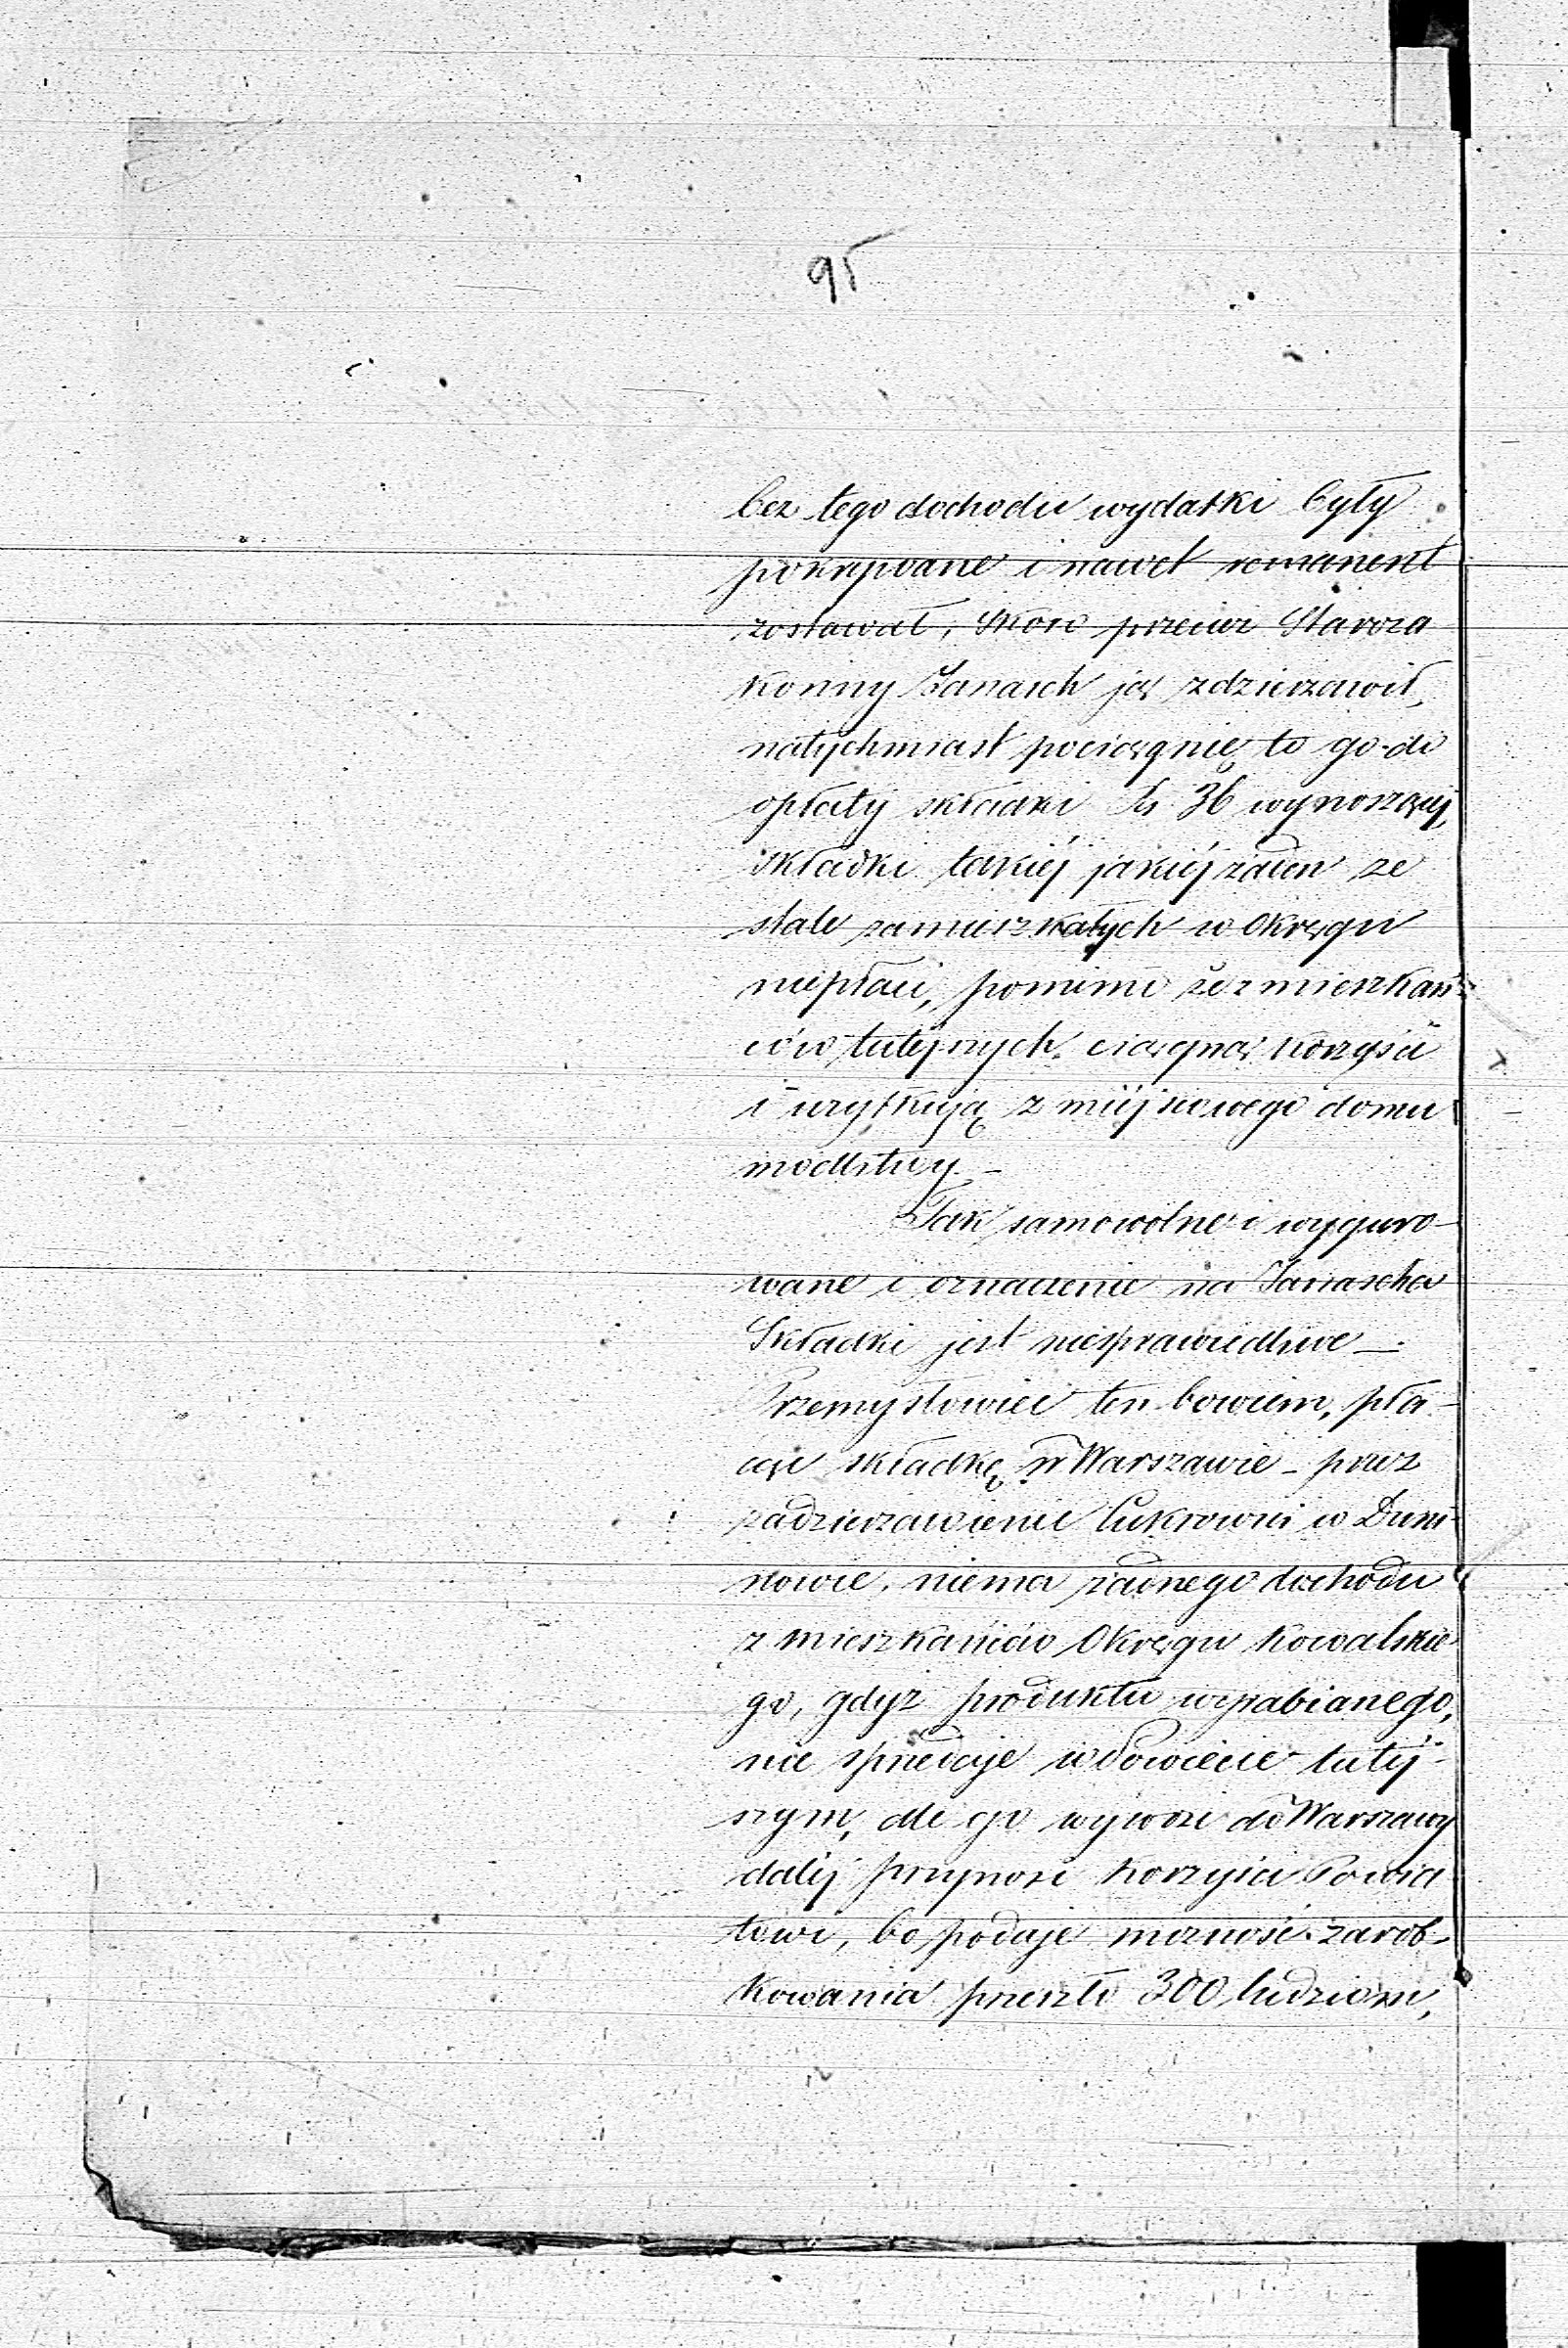 95
bez tego dochodu wydatki były
pokrywane i nawet remanent
zostawał, skoro przeciez Staroza
konny Janasch ją zdzierzawił,
natychmiast pociągnięto go do
opłaty składki Rs 36 wynoszącej,
składki takiéj jakiéj żaden ze
stale zamieszkałych w Okręgu
niepłaci, pomimo że z mieszkań-
ców tutejszych ciągną korzyści
i uzytkują z miejscowego domu
modlitwy –
Tak samowolne i wyguro-
wane oznaczenie na Janascha
Składki jest niesprawiedliwe –
Przemysłowiec ten bowiem, pła-
cąc składkę w Warszawie – przez
zadzierzawienie Cukrowni w Duni-
nowie, niema żadnego dochodu
z mieszkańców Okręgu Kowalskie
go, gdyż produktu wyrabianego,
nie sprzedaje w Powiecie tutéj-
szym, ale go wywozi do Warszawy
daléj przynosi korzyści Powia
towi, bo podaje moznosć zarob-
kowania przeszło 300 ludziom,